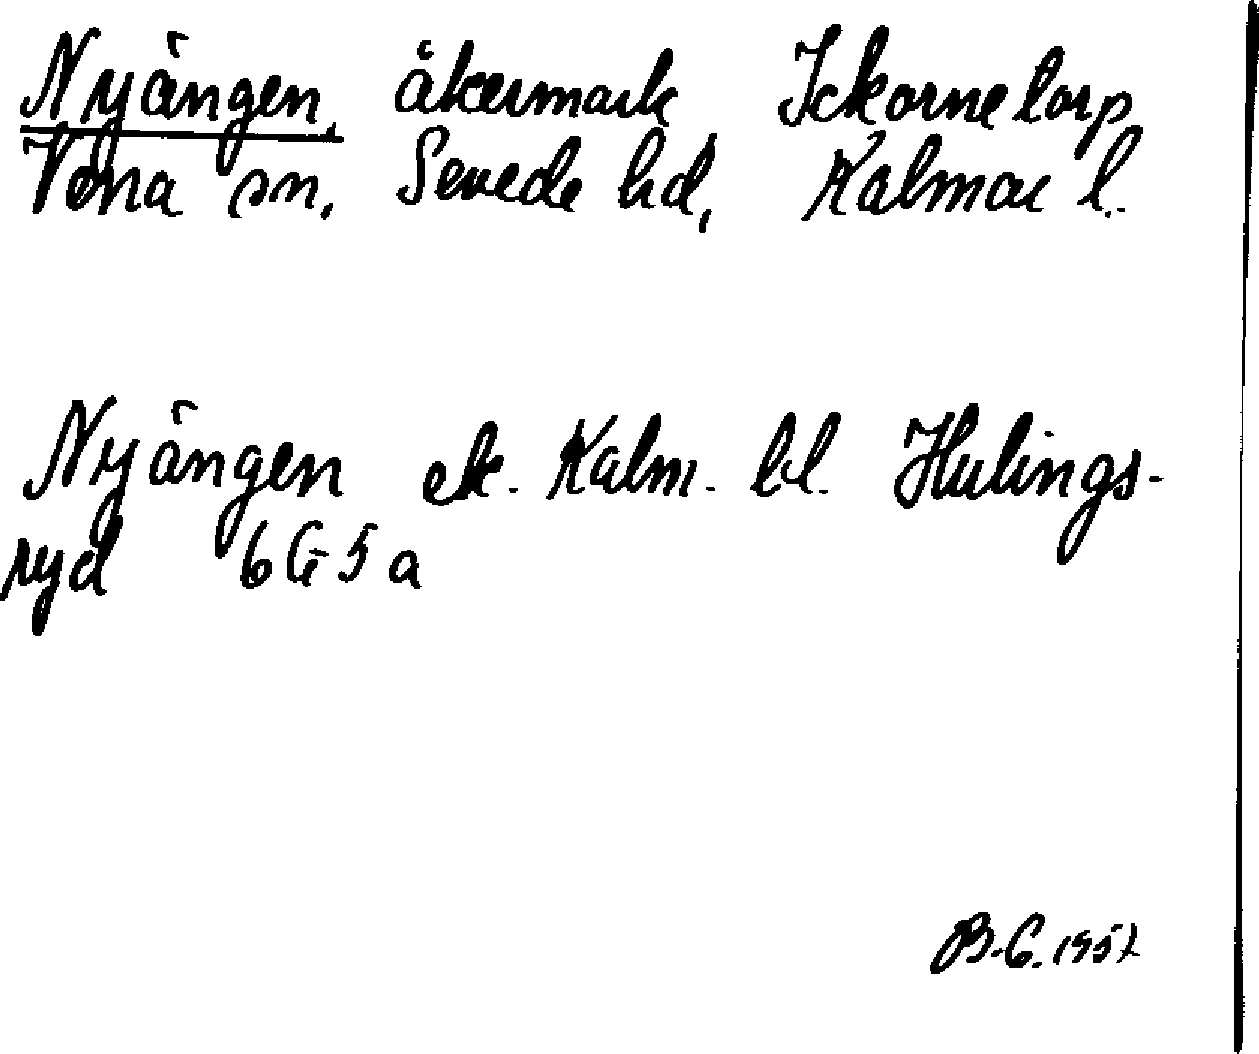 Nyängen, åkermark Ickornetorp
Vena sn, Sevede hd, Kalmar l.
Nyängen ek. Kalm. bl. Hulings-
ryd 6G5a
B.G. 1957